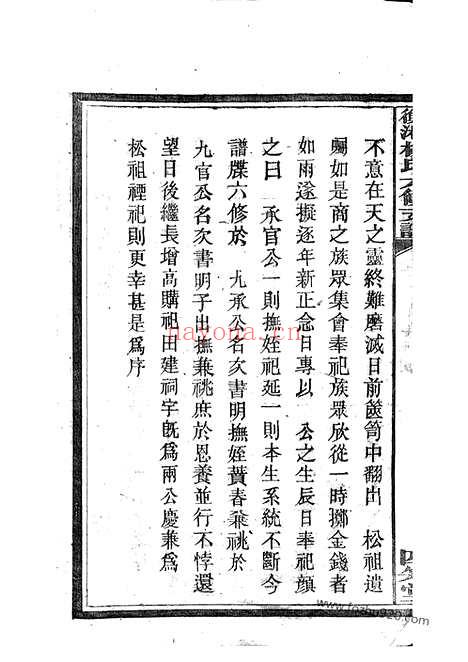 不意在天之靈終難磨滅日前篋笥中翻出　松祖遺
囑如是商之族眾集會奉祀族眾欣從一時擲金錢者
如雨遂擬逐年新正念日專以　公之生辰日奉祀顔
之曰　承官公一則撫姪祀延一則本生系統不斷今
譜牒六修於　九承公名次書明撫姪蕢春兼祧於
九官公名次書明子出撫兼祧庶於恩養並行不悖還
望日後繼長增高購祀田建祠宇旣爲兩公慶兼爲
松祖禋祀則更幸甚是爲序
nayona.cn
www.fozhu920.com